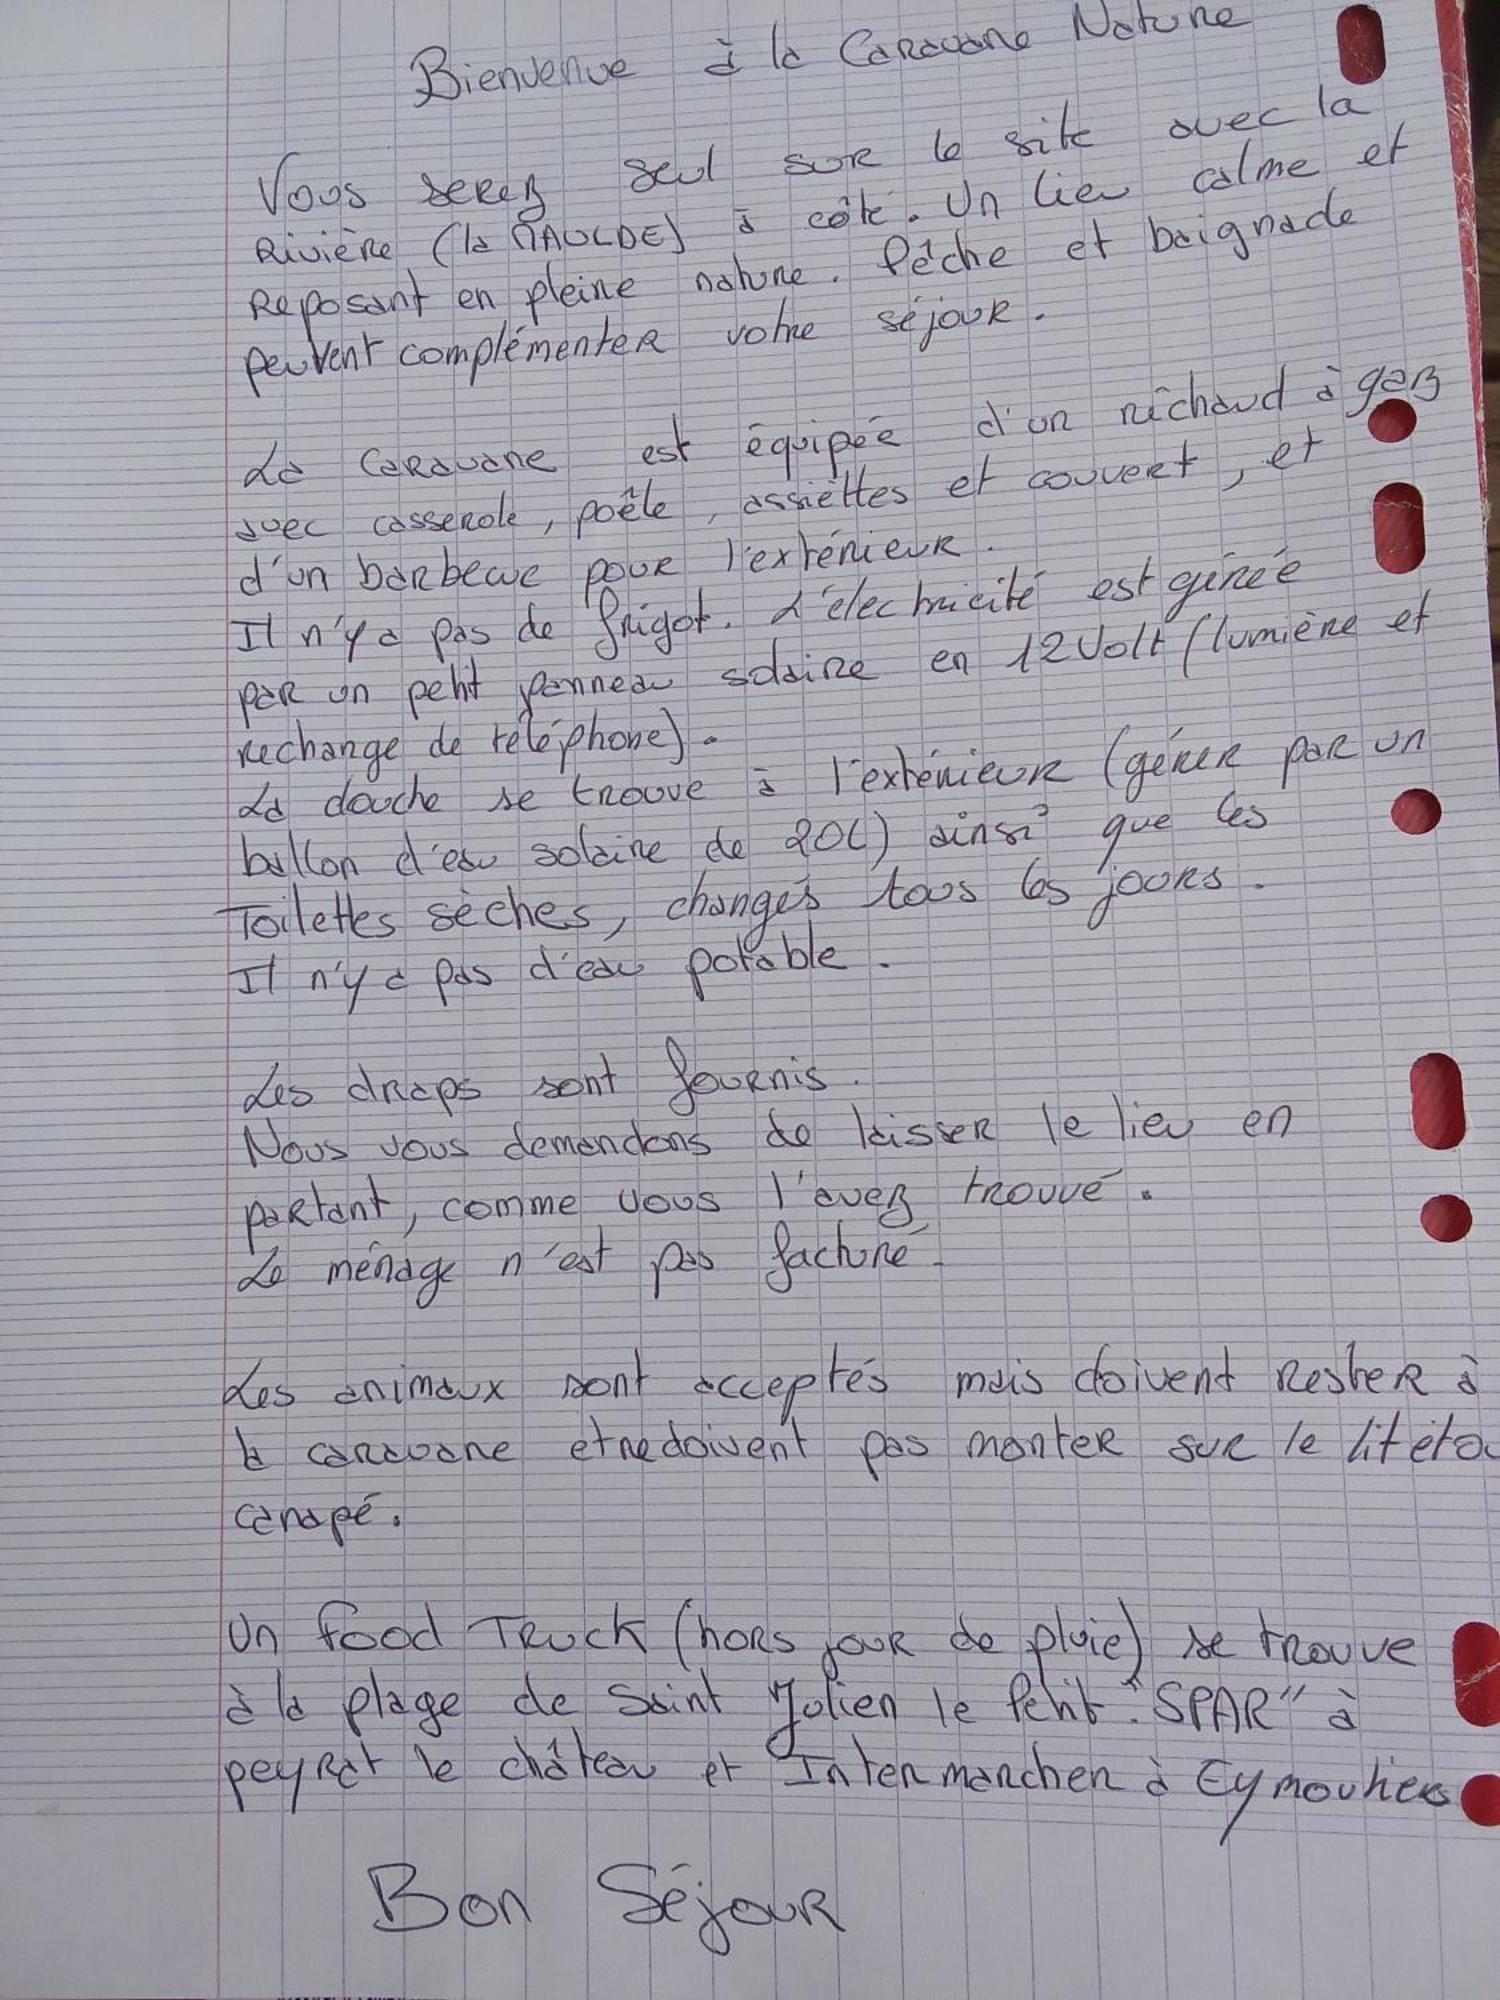 Bienvenue à la Caravane Nature
Vous serez seul sur le site avec la
Rivière (la MAULDE) à côté. Un lieu calme et
Reposant en pleine nature. Pêche et baignade
peuvent complémenter votre séjour.
La caravane est équipée d'un réchaud à gaz
avec casserole, poêle, assiettes et couvert, et
d'un barbecue pour l'extérieur.
Il n'y a pas de frigot. L'électricité est gérée
par un petit panneau solaire en 12 Volt (lumière et
rechange de téléphone).
La douche se trouve à l'extérieur (gérer par un
ballon d'eau solaire de 20L) ainsi que les
Toilettes sèches, changés tous les jours.
Il n'y a pas d'eau potable.
Les draps sont fournis.
Nous vous demandons de laisser le lieu en
partant, comme vous l'avez trouvé.
Le ménage n'est pas facturé.
Les animaux sont acceptés mais doivent rester à
la caravane et ne doivent pas monter sur le lit et
canapé.
Un food Truck (hors jour de pluie) se trouve
à la plage de Saint Julien le Petit. "SPAR" à
peyrat le château et Intermarcher à Eymoutiers
Bon Séjour